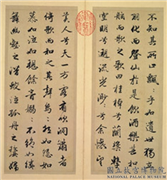 不知其所止飄飄乎如遺世獨立
羽化而登仙於是飲酒樂甚扣
舷而歌之歌曰桂棹兮蘭槳擊
空明兮溯流光渺渺兮予懷望
美人兮天一方客有吹洞簫者
倚歌而和之其聲嗚嗚然如怨如
慕如泣如訴餘音嫋嫋不絕如縷
舞幽壑之潛蛟泣孤舟之嫠婦
國立故宮博物院
NATIONAL PALACE MUSEUM